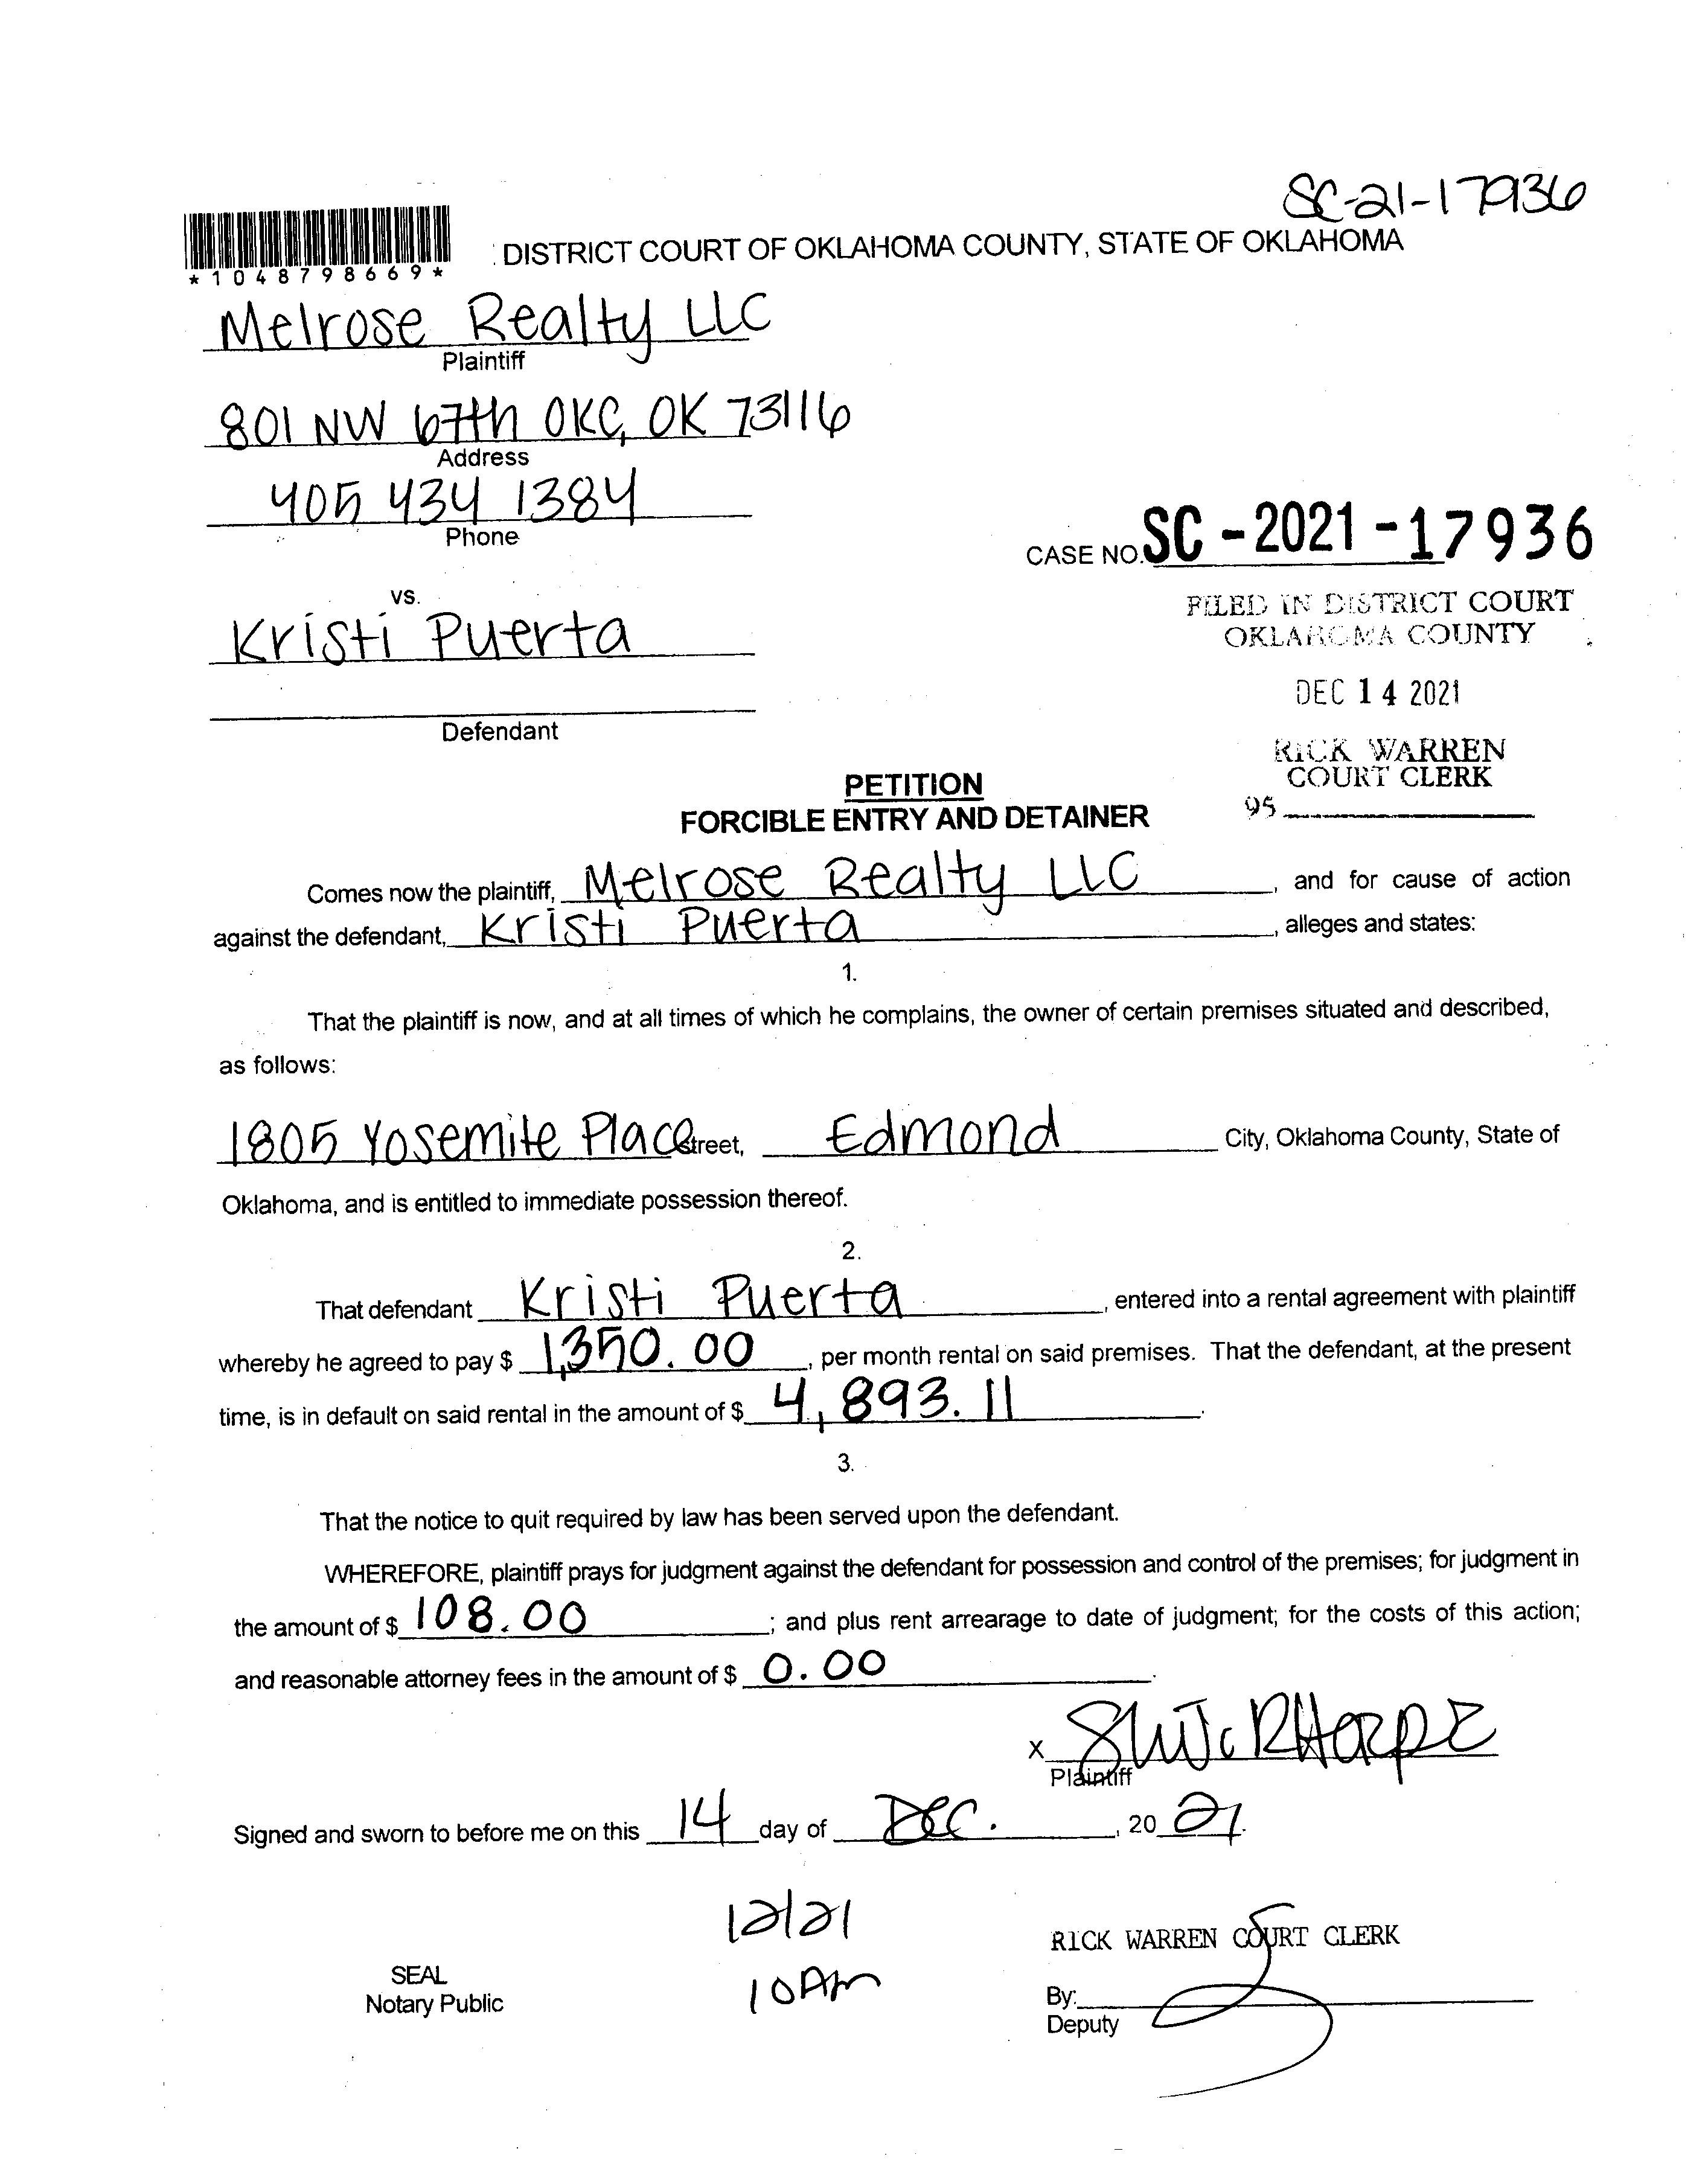 SC-21-17936
DISTRICT COURT OF OKLAHOMA COUNTY, STATE OF OKLAHOMA
*1048798669*
Melrose Realty LLC
Plaintiff
801 NW 67th OKC, OK 73116
Address
405 434 1384
Phone
CASE NO. SC-2021-17936
vs.
FILED IN DISTRICT COURT
OKLAHOMA COUNTY
Kristi Puerta
DEC 14 2021
Defendant
RICK WARREN
COURT CLERK
PETITION
95
FORCIBLE ENTRY AND DETAINER
Comes now the plaintiff, Melrose Realty LLC, and for cause of action
against the defendant, Kristi Puerta, alleges and states:
1.
That the plaintiff is now, and at all times of which he complains, the owner of certain premises situated and described,
as follows:
1805 Yosemite Place Street, Edmond City, Oklahoma County, State of
Oklahoma, and is entitled to immediate possession thereof.
2.
That defendant Kristi Puerta, entered into a rental agreement with plaintiff
whereby he agreed to pay $ 1,350.00, per month rental on said premises. That the defendant, at the present
time, is in default on said rental in the amount of $ 4,893.11.
3.
That the notice to quit required by law has been served upon the defendant.
WHEREFORE, plaintiff prays for judgment against the defendant for possession and control of the premises; for judgment in
the amount of $ 108.00; and plus rent arrearage to date of judgment; for the costs of this action;
and reasonable attorney fees in the amount of $ 0.00.
X
Plaintiff
Signed and sworn to before me on this 14 day of Dec., 2021.
12/21
RICK WARREN COURT CLERK
SEAL
10 Am
Notary Public
By:
Deputy